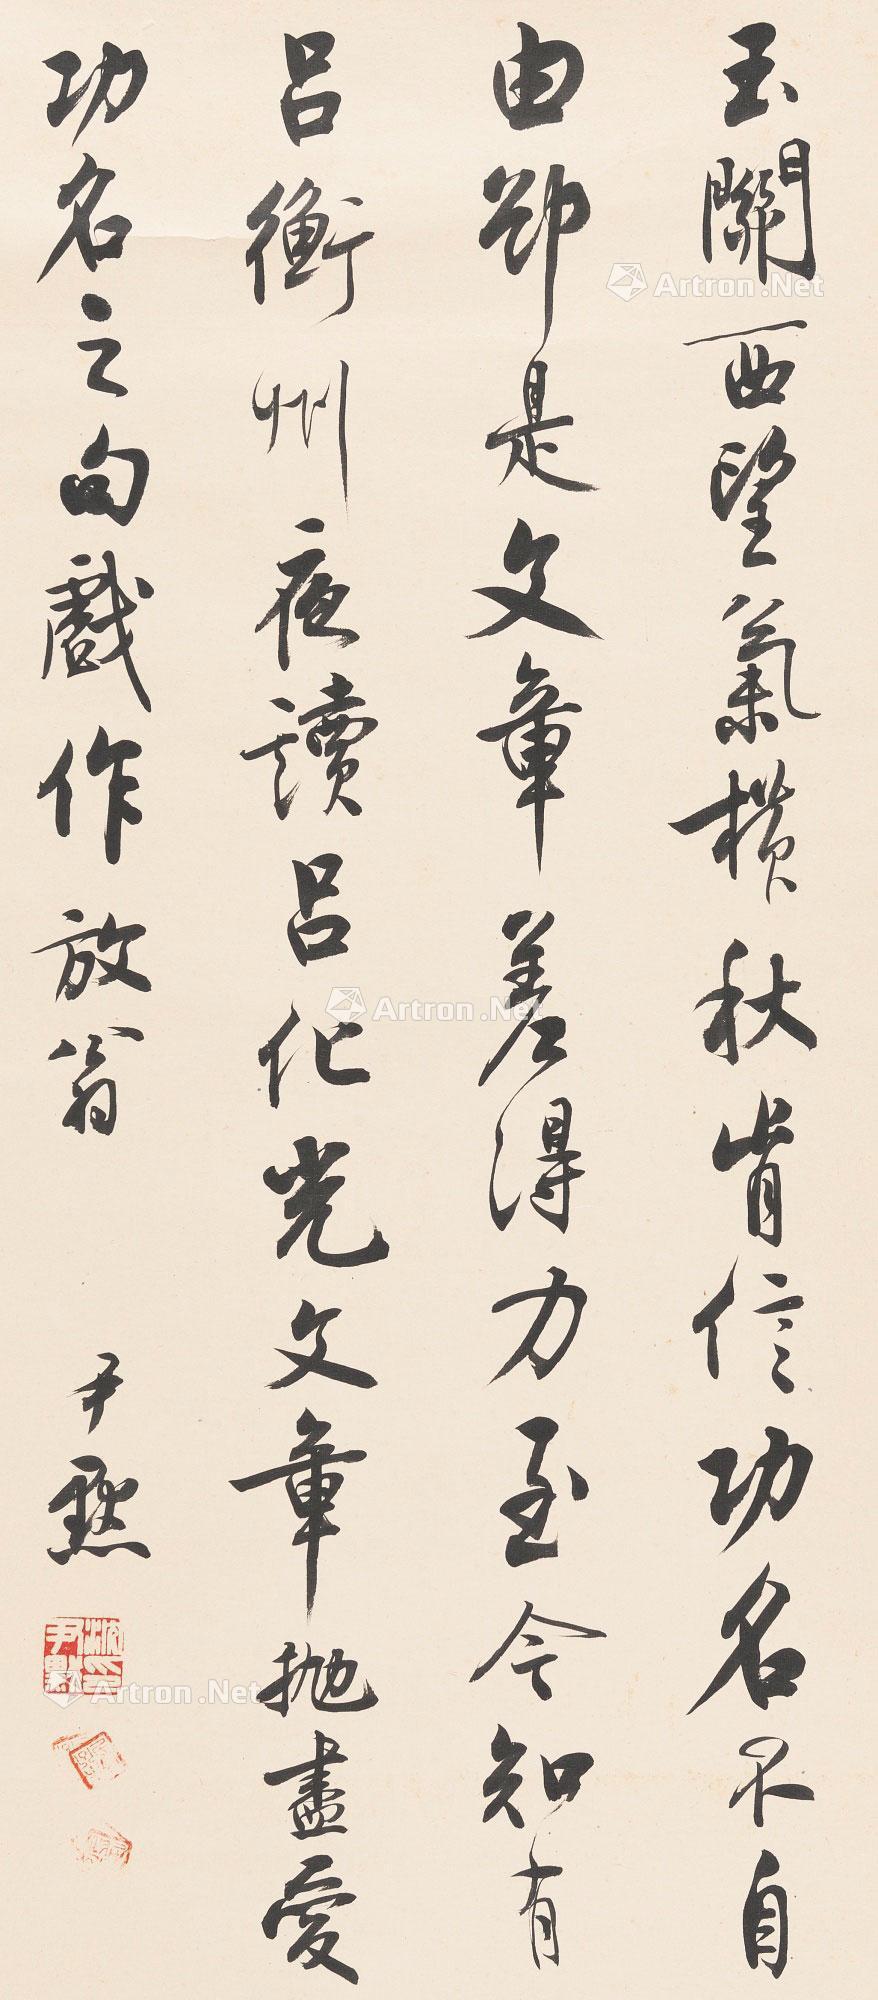 玉關西望氣橫秋肯信功名不自
由卻是文章差得力至今知有
呂衡州夜讀呂化光文章拋盡愛
功名之句戲作放翁
尹默
沈尹默印
Artron.Net
Artron.Net
Artron.Net